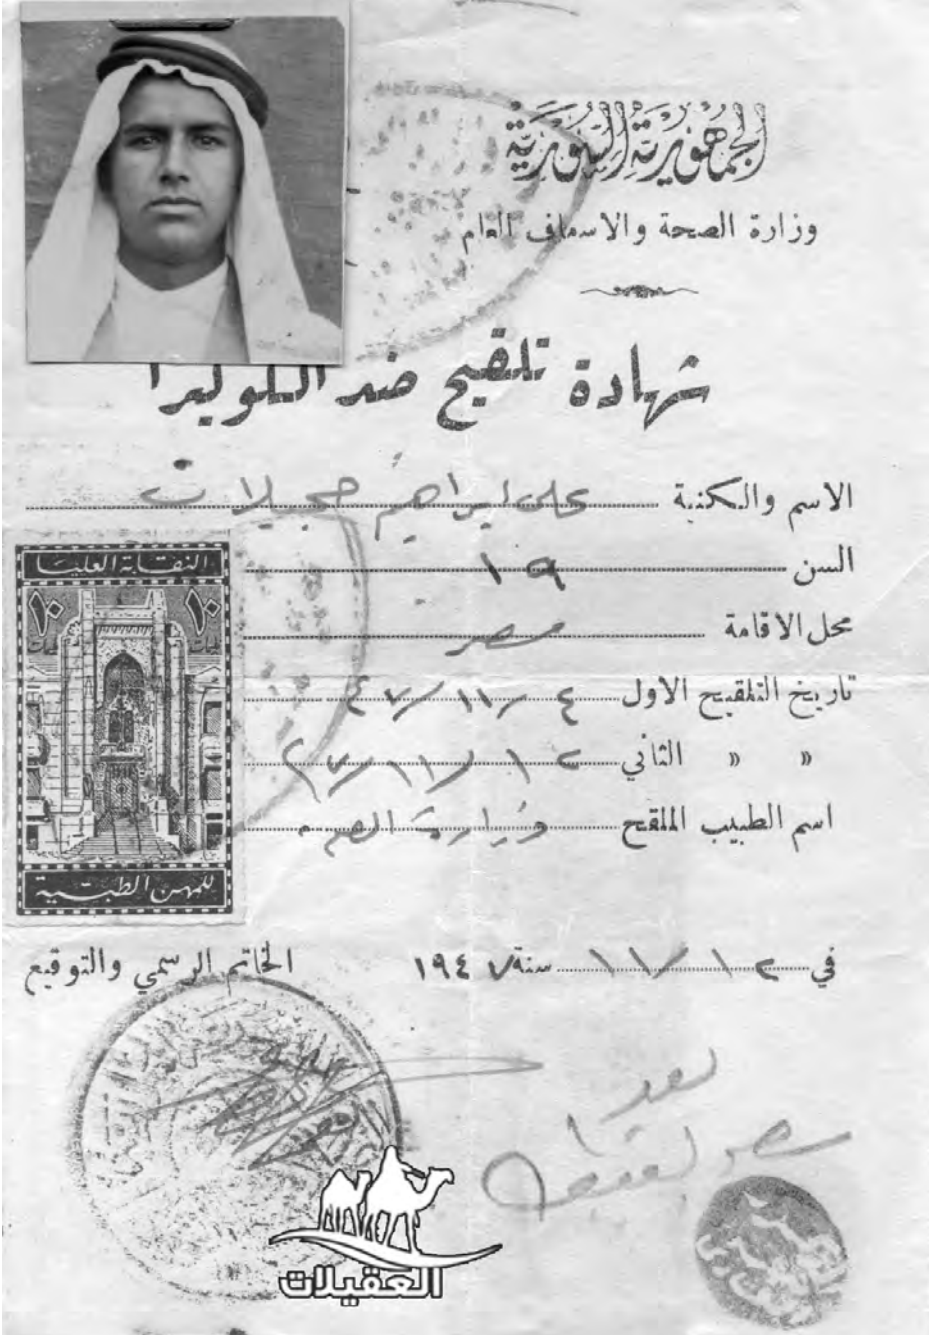 الجمهورية السورية
وزارة الصحة والاسعاف العام
شهادة تلقيح ضد الكوليرا
الاسم والكنية علي ابراهيم حجيلان
السن ١٩
محل الاقامة مصر
تاريخ التلقيح الاول ٤/١١/٤٧
» » الثاني ١٢/١١/٤٧
اسم الطبيب الملقح وزارة الصحة
النقابة العليا
١٠ ١٠
للمهن الطبية
في ١٢/١١ سنة ١٩٤٧
الخاتم الرسمي والتوقيع
العقيلات